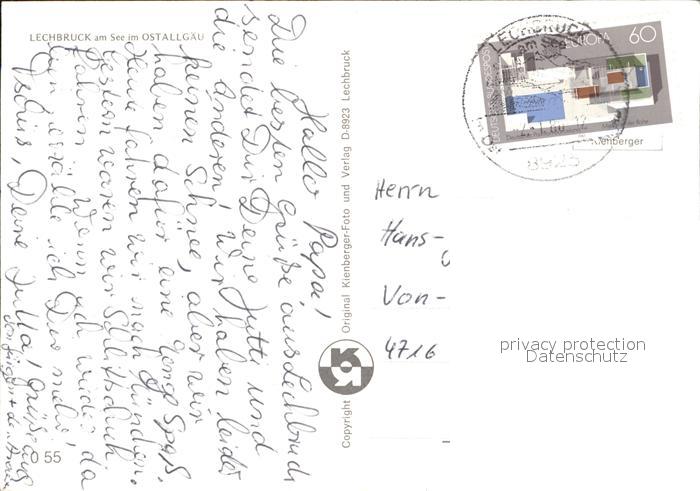 LECHBRUCK am See im OSTALLGÄU
Hallo Papa!
Die besten Grüße aus Lechbruck
sendet Dir Deine Jutta und
die Anderen. Wir haben leider
keinen Schnee, aber wir
haben dafür eine Menge Spaß.
Heute fahren wir nach München.
Gestern waren wir Schlittschuh
fahren. Wenn ich wieder da
bin erzähle ich Dir mehr.
Tschüß, Deine Jutta! Grüße auch
von Jürgen + den Anderen
55
Copyright Original Kienberger-Foto und Verlag D-8923 Lechbruck
LECHBRUCK
am See
8923
EUROPA 60
DEUTSCHE BUNDESPOST
Kienberger
Herrn
Hans-
Von-
4716
privacy protection
Datenschutz